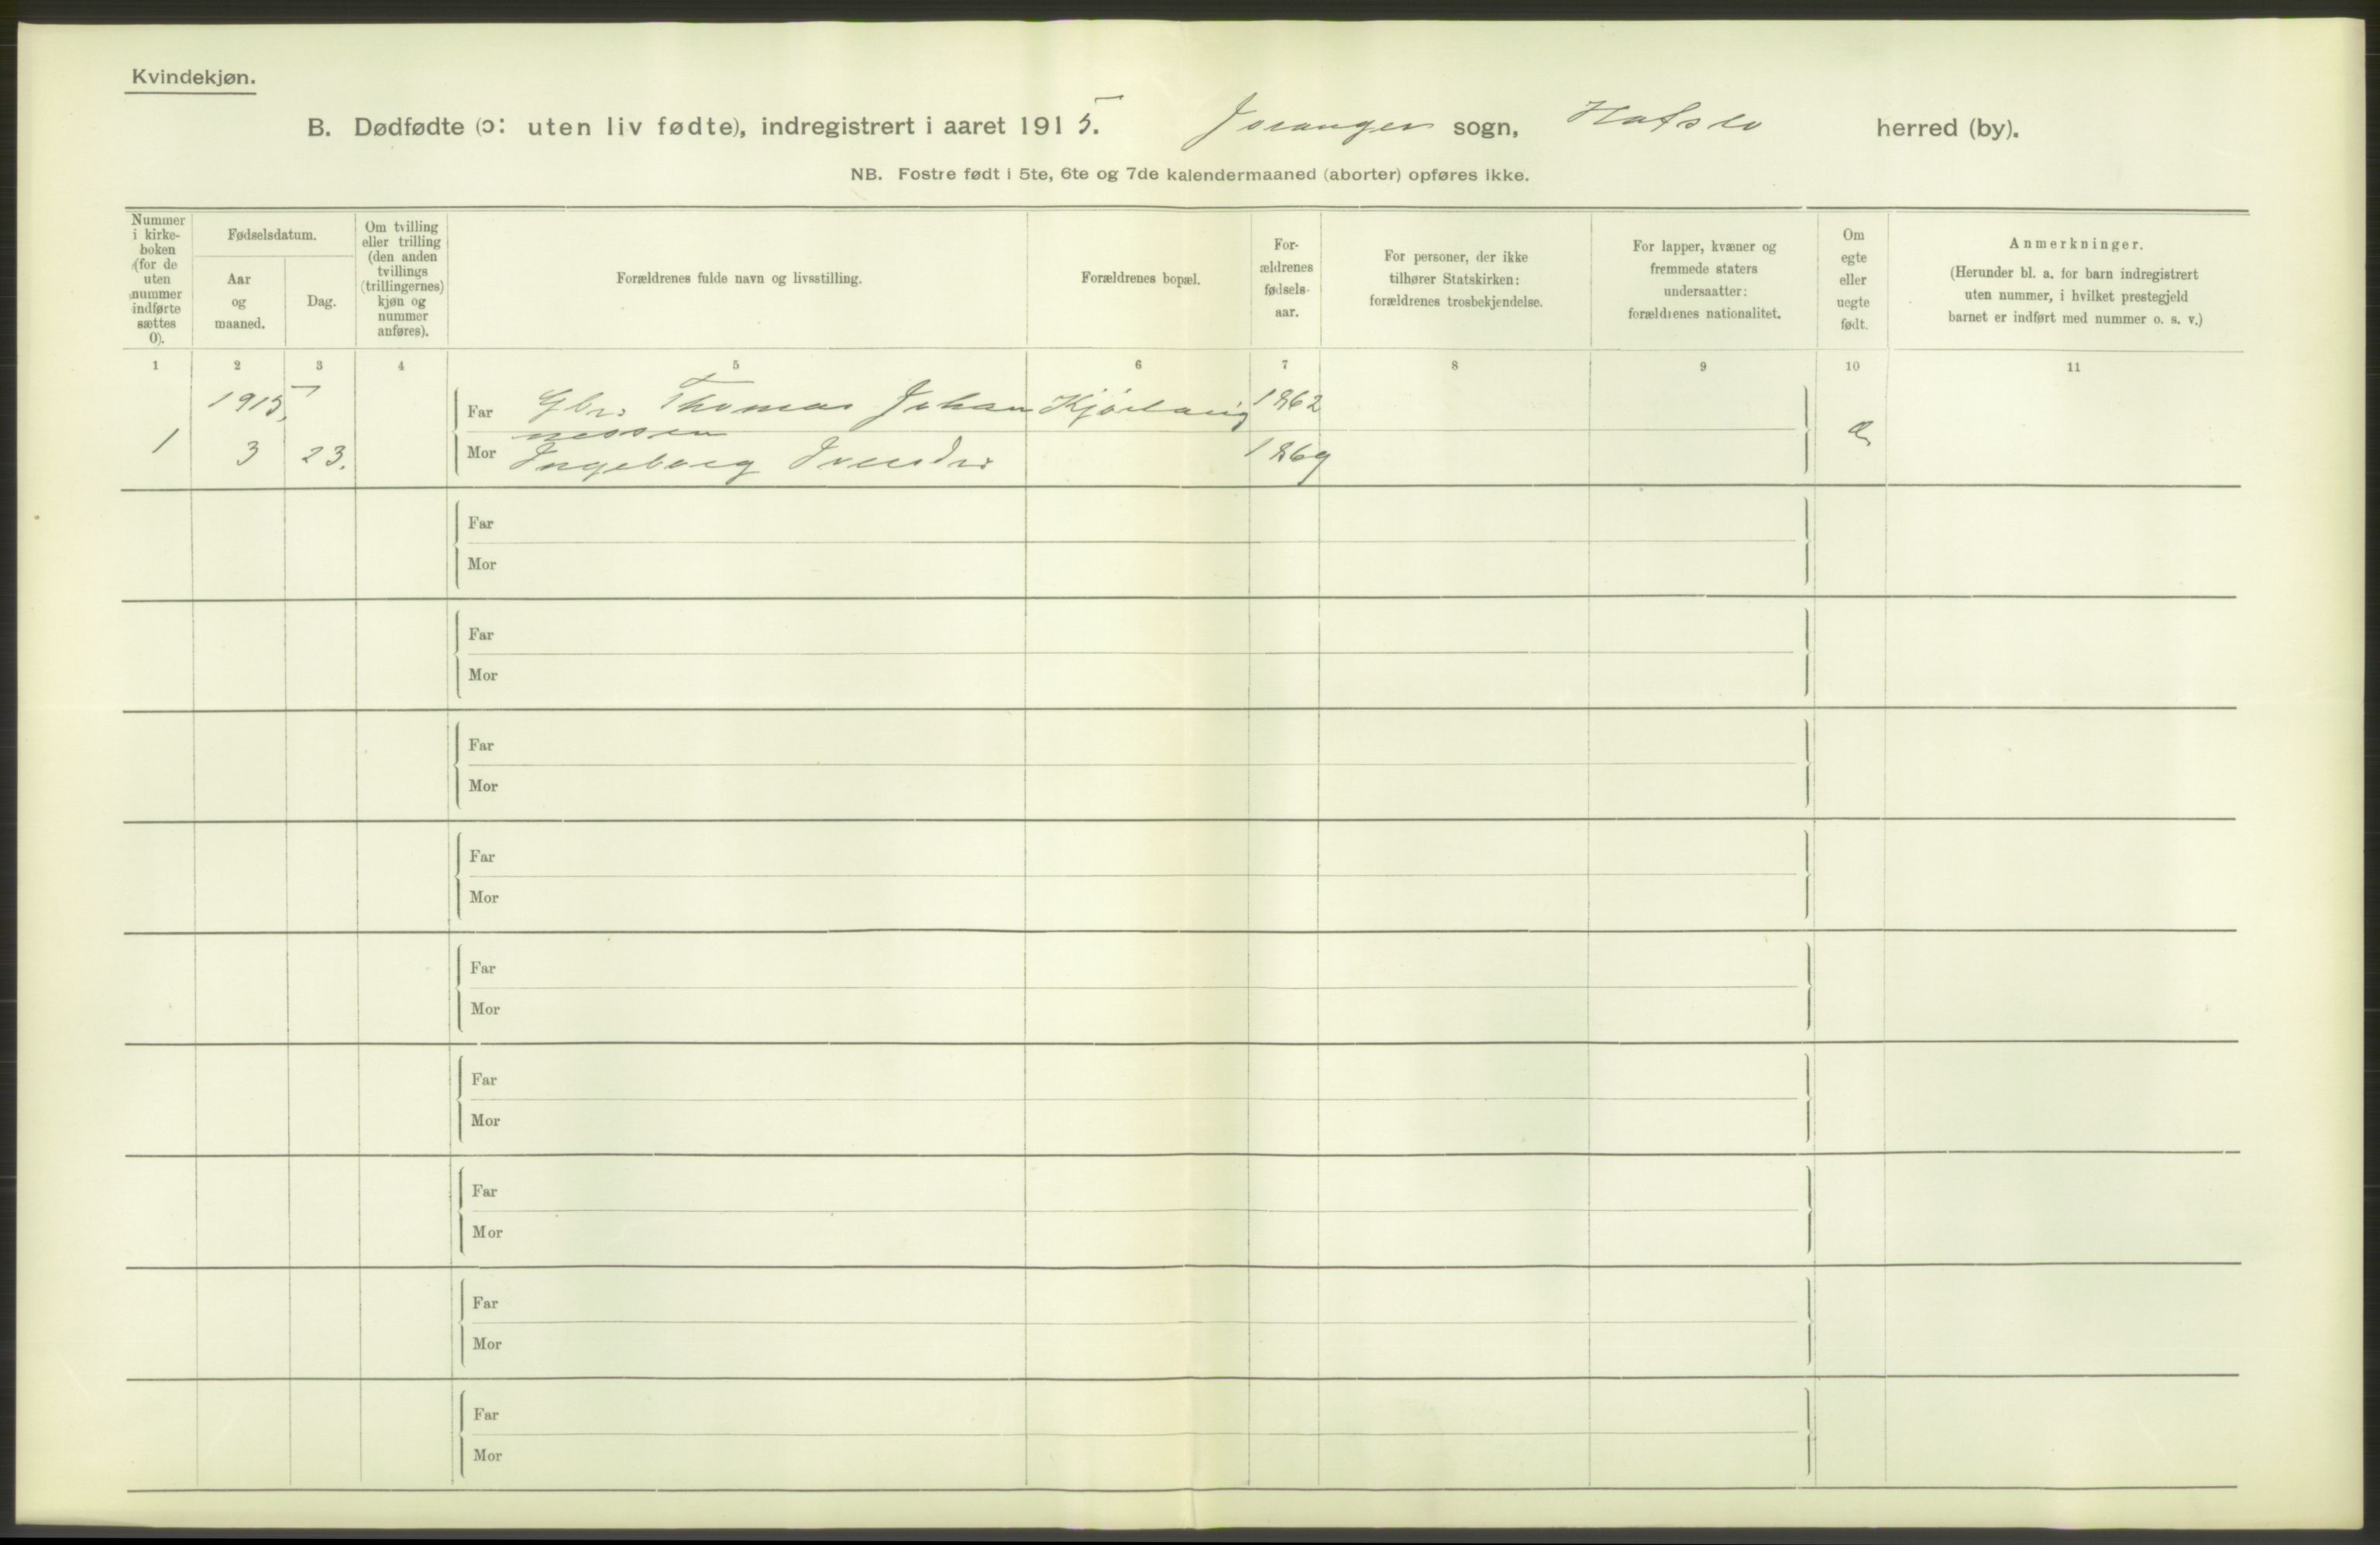 Kvindekjøn.
B. Dødfødte (ɔ: uten liv fødte), indregistrert i aaret 1915. Joranger sogn, Hafslo herred (by).
NB. Fostre født i 5te, 6te og 7de kalendermaaned (aborter) opføres ikke.
Nummer
i kirke-
boken
(for de
uten
nummer
indførte
sættes
0).
Fødselsdatum.
Aar
og
maaned.
Dag.
Om tvilling
eller trilling
(den anden
tvillings
(trillingernes)
kjøn og
nummer
anføres).
Forældrenes fulde navn og livsstilling.
Forældrenes bopæl.
For-
ældrenes
fødsels-
aar.
For personer, der ikke
tilhører Statskirken:
forældrenes trosbekjendelse.
For lapper, kvæner og
fremmede staters
undersaatter:
forældrenes nationalitet.
Om
egte
eller
uegte
født.
Anmerkninger.
(Herunder bl. a. for barn indregistrert
uten nummer, i hvilket prestegjeld
barnet er indført med nummer o. s. v.)
1 2 3 4 5 6 7 8 9 10 11
1915,
Far Gbr. Thomas Johan 1862
nessen
1 3 23. Mor Ingeborg 1869
Far
Mor
Far
Mor
Far
Mor
Far
Mor
Far
Mor
Far
Mor
Far
Mor
Far
Mor
Far
Mor